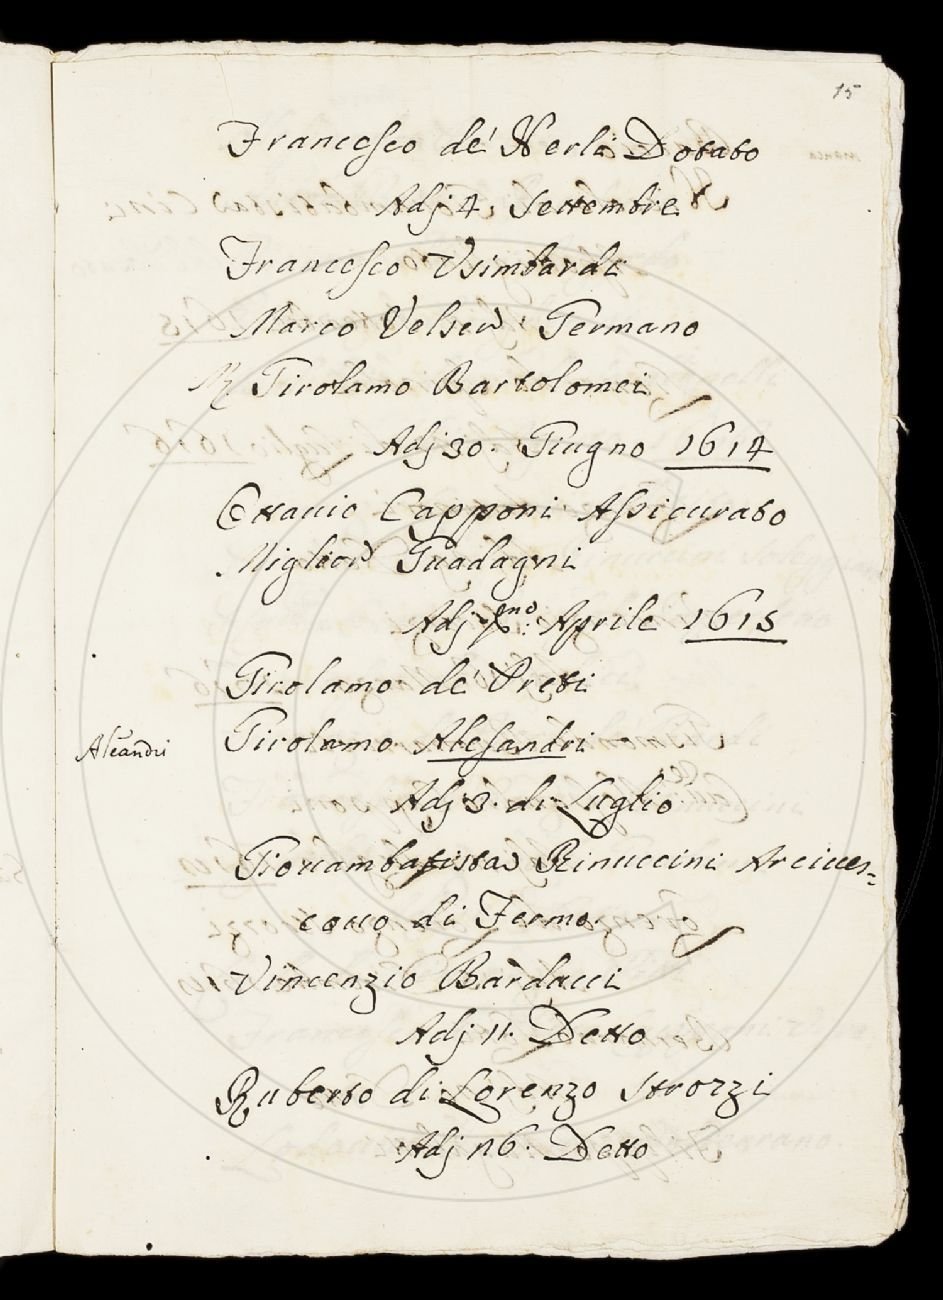 15
Francesco de' Nerli Dotato
Adj 4. Settembre
Francesco Vsimbardi
Marco Velser Germano
Girolamo Bartolomei
Adj 30. Giugno 1614
Ottauio Capponi Assicurato
Miglior Guadagni
Adj pmo. Aprile 1615
Girolamo de' Preti
Aleandri
Girolamo Alesandri
Adj 3. di Luglio
Giouambatista Rinuccini Arciues=
couo di Fermo
Vincenzio Bardacci
Adj 11. Detto
Ruberto di Lorenzo Strozzi
Adj 16. Detto